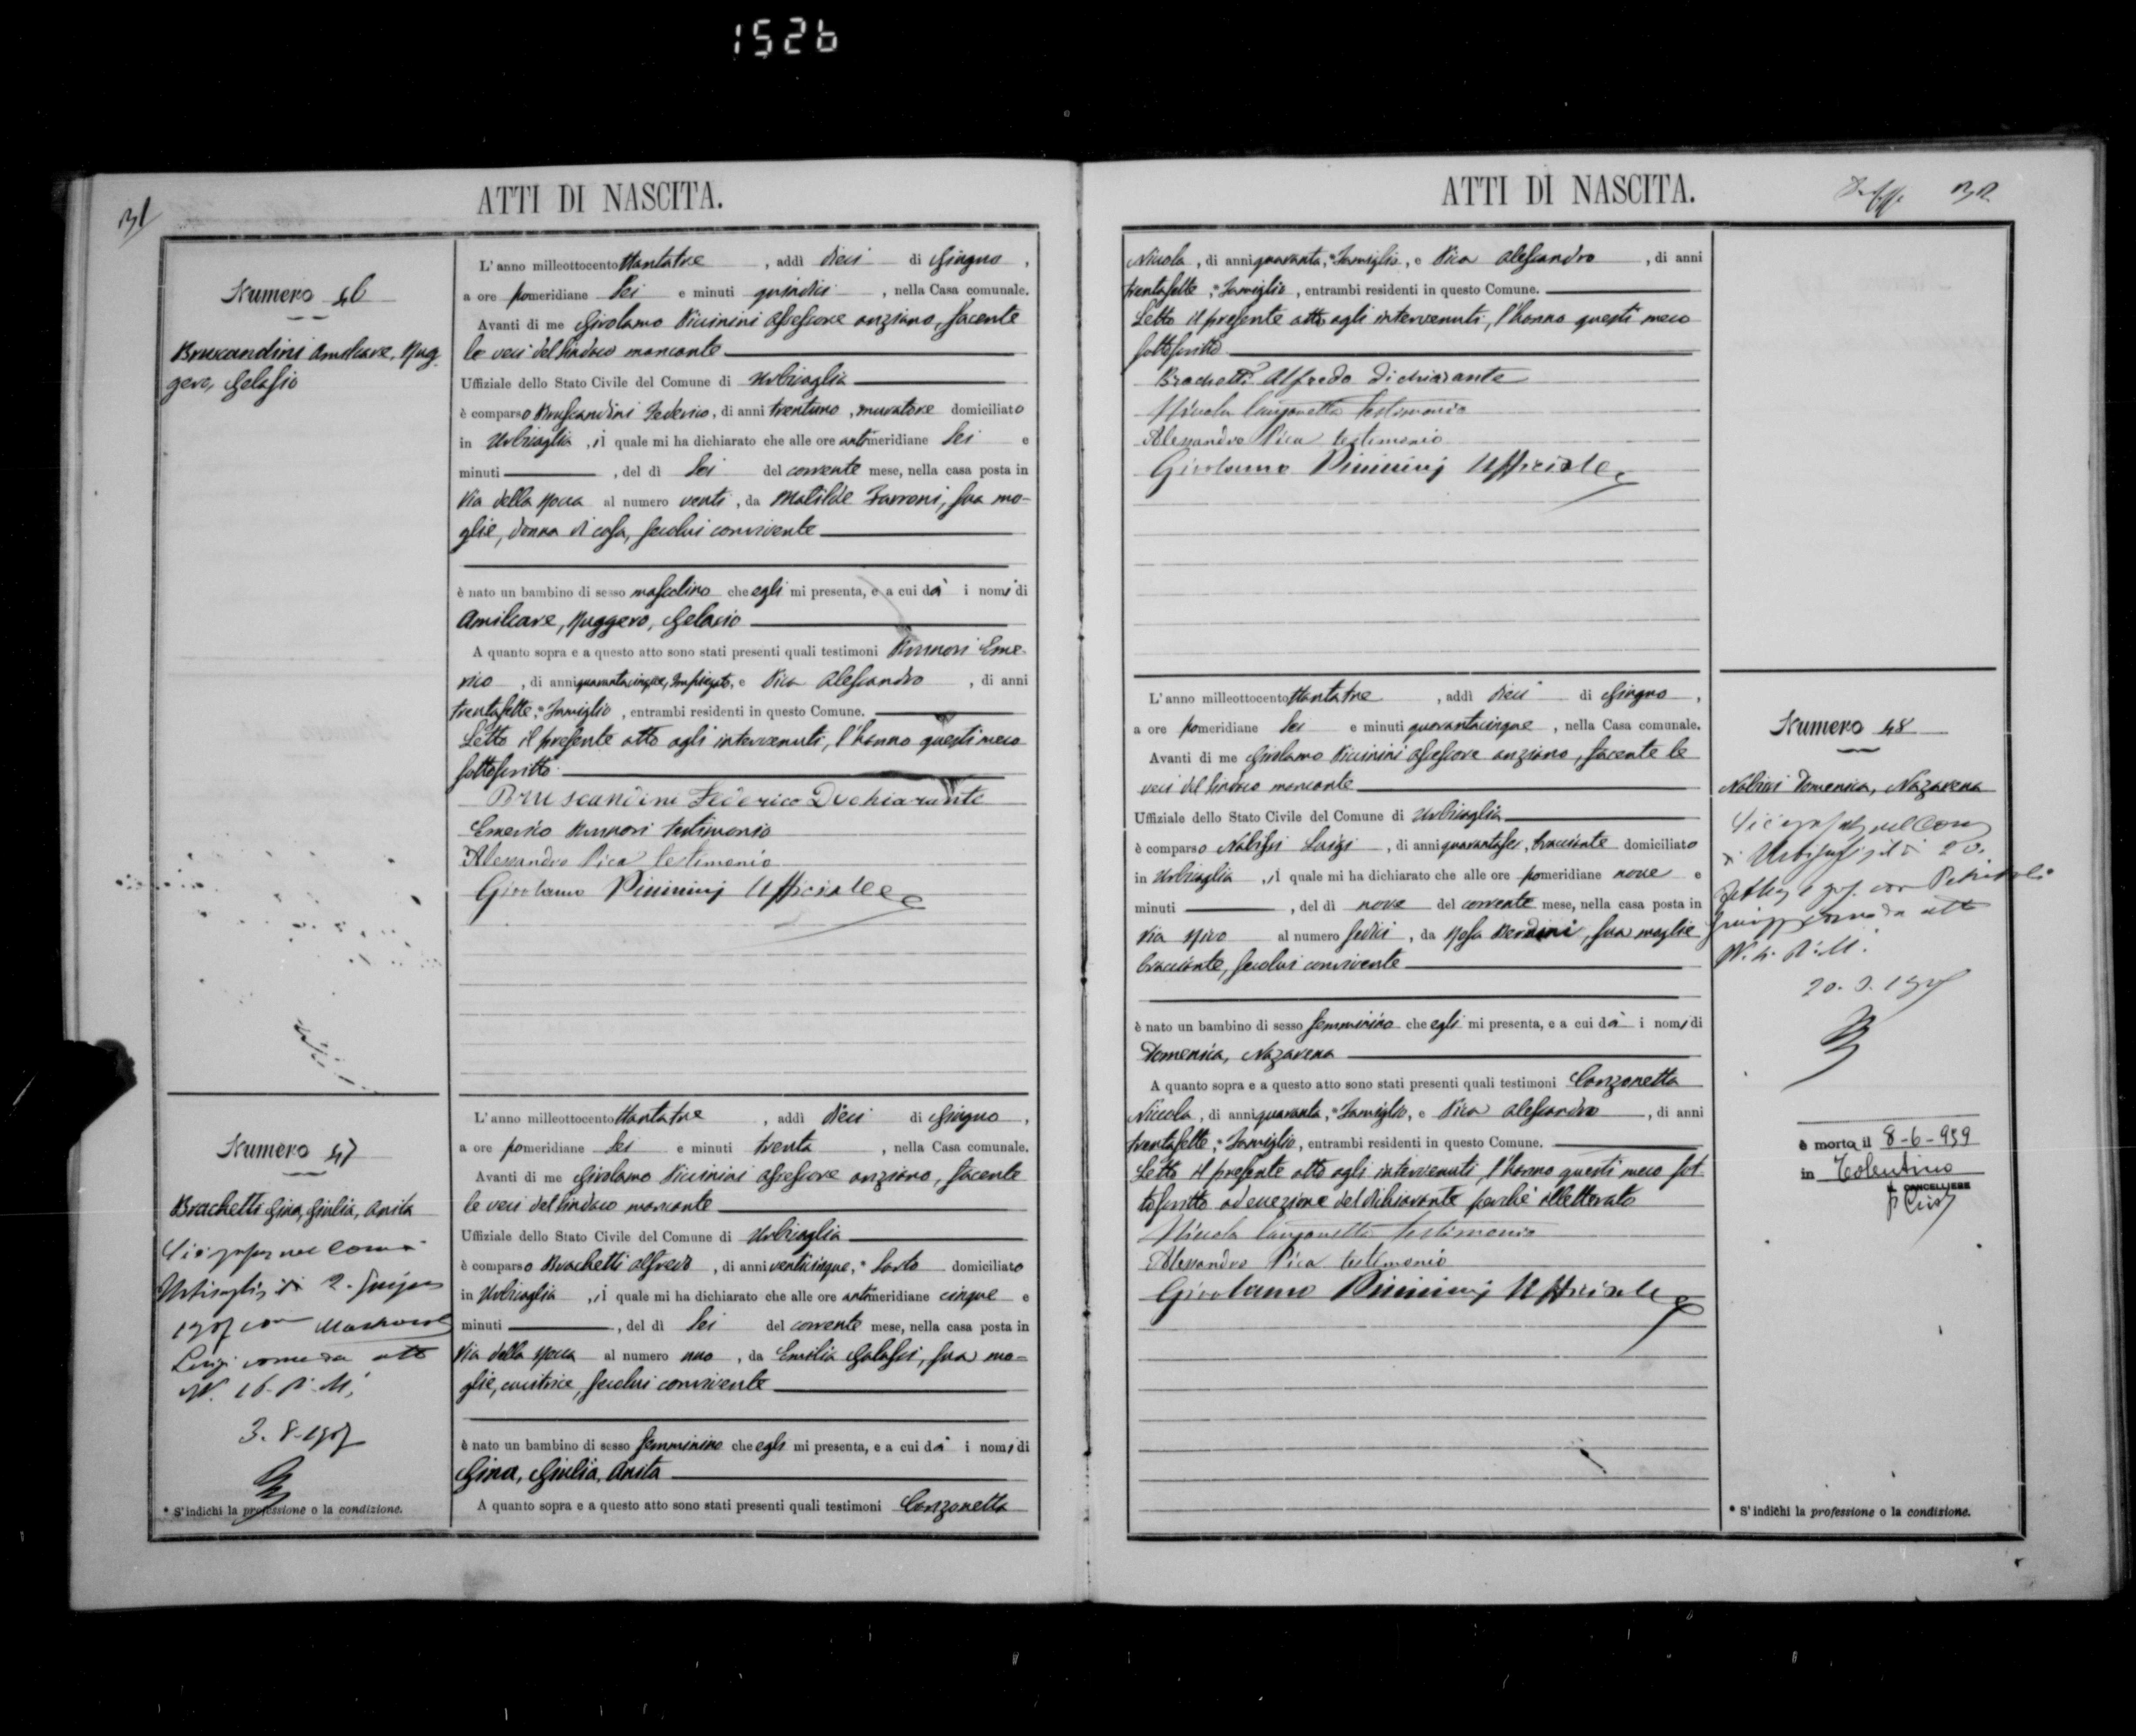 1526
ATTI DI NASCITA.
31
Numero 46
Bruscandini Amilcare, Rug
gero, Gelasio
L'anno milleottocento ottantatre, addì dieci di Giugno,
a ore pomeridiane sei e minuti quindici, nella Casa comunale.
Avanti di me Girolamo Piccinini Assessore anziano, facente
le veci del Sindaco mancante
Uffiziale dello Stato Civile del Comune di Urbisaglia
è comparso Bruscandini Federico, di anni trentuno, muratore domiciliato
in Urbisaglia, il quale mi ha dichiarato che alle ore antimeridiane sei e
minuti , del dì sei del corrente mese, nella casa posta in
Via della Rocca al numero venti, da Matilde Farroni, sua mo-
glie, donna di casa, secolui convivente
è nato un bambino di sesso mascolino che egli mi presenta, e a cui dà i nomi di
Amilcare, Ruggero, Gelasio
A quanto sopra e a questo atto sono stati presenti quali testimoni Eme-
rico, di anni quarantacinque, Impiegato, e Pica Alessandro, di anni
trentasette, Famiglio, entrambi residenti in questo Comune.
Letto il presente atto agli intervenuti, l'hanno questi meco
sottoscritto.
Bruscandini Federico Dichiarante
Emerico testimonio
Alessandro Pica testimonio
Girolamo Piccinini Ufficiale
Numero 47
Brachetti Gina, Giulia, Anita
Urbisaglia
Luigi come da atto
N. 16. P. II.
L'anno milleottocento ottantatre, addì dieci di Giugno,
a ore pomeridiane sei e minuti trenta, nella Casa comunale.
Avanti di me Girolamo Piccinini Assessore anziano, facente
le veci del Sindaco mancante
Uffiziale dello Stato Civile del Comune di Urbisaglia
è comparso Brachetti Alfredo, di anni venticinque, * Sarto domiciliato
in Urbisaglia, il quale mi ha dichiarato che alle ore antimeridiane cinque e
minuti , del dì sei del corrente mese, nella casa posta in
Via della Rocca al numero uno, da Emilia Galassi, sua mo-
glie, cucitrice, secolui convivente
è nato un bambino di sesso femminino che egli mi presenta, e a cui dà i nomi di
Gina, Giulia, Anita
A quanto sopra e a questo atto sono stati presenti quali testimoni Canzonetta
* S'indichi la professione o la condizione.
ATTI DI NASCITA.
32
Nicola, di anni quaranta, * Famiglio, e Pica Alessandro, di anni
trentasette, * Famiglio, entrambi residenti in questo Comune.
Letto il presente atto agli intervenuti, l'hanno questi meco
sottoscritto
Brachetti Alfredo dichiarante
Nicola Canzonetta testimonio
Alessandro Pica testimonio
Girolamo Piccinini Ufficiale
L'anno milleottocento ottantatre, addì dieci di Giugno,
a ore pomeridiane sei e minuti quarantacinque, nella Casa comunale.
Avanti di me Girolamo Piccinini Assessore anziano, facente le
veci del Sindaco mancante
Uffiziale dello Stato Civile del Comune di Urbisaglia
è comparso Luigi, di anni quarantasei, bracciante domiciliato
in Urbisaglia, il quale mi ha dichiarato che alle ore pomeridiane nove e
minuti , del dì nove del corrente mese, nella casa posta in
Via al numero sedici, da Rosa, sua moglie
bracciante, secolui convivente
è nato un bambino di sesso femminino che egli mi presenta, e a cui dà i nomi di
Domenica, Nazarena
A quanto sopra e a questo atto sono stati presenti quali testimoni Canzonetta
Nicola, di anni quaranta, * Famiglio, e Pica Alessandro, di anni
trentasette, * Famiglio, entrambi residenti in questo Comune.
Letto il presente atto agli intervenuti, l'hanno questi meco sot
toscritto ad eccezione del dichiarante perchè illetterato
Nicola Canzonetta testimonio
Alessandro Pica testimonio
Girolamo Piccinini Ufficiale
Numero 48
Domenica, Nazarena
è morta il 8-6-959
in Tolentino
CANCELLIERE
* S'indichi la professione o la condizione.